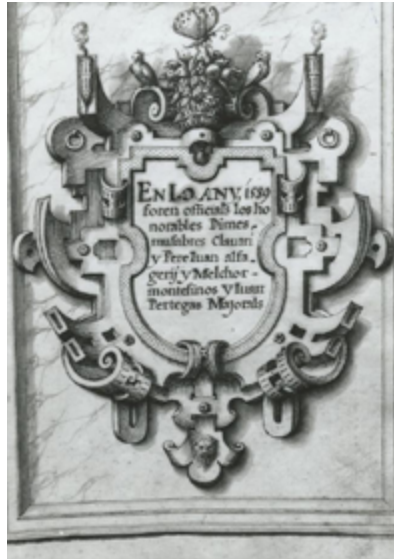 EN LO ANY, 1589
foren officials los ho
norables Dimes
musabres Clauari
y Pere Iuan alfa-
gerij y Melchor -
montesinos y Iuan
Pertegas Majorals